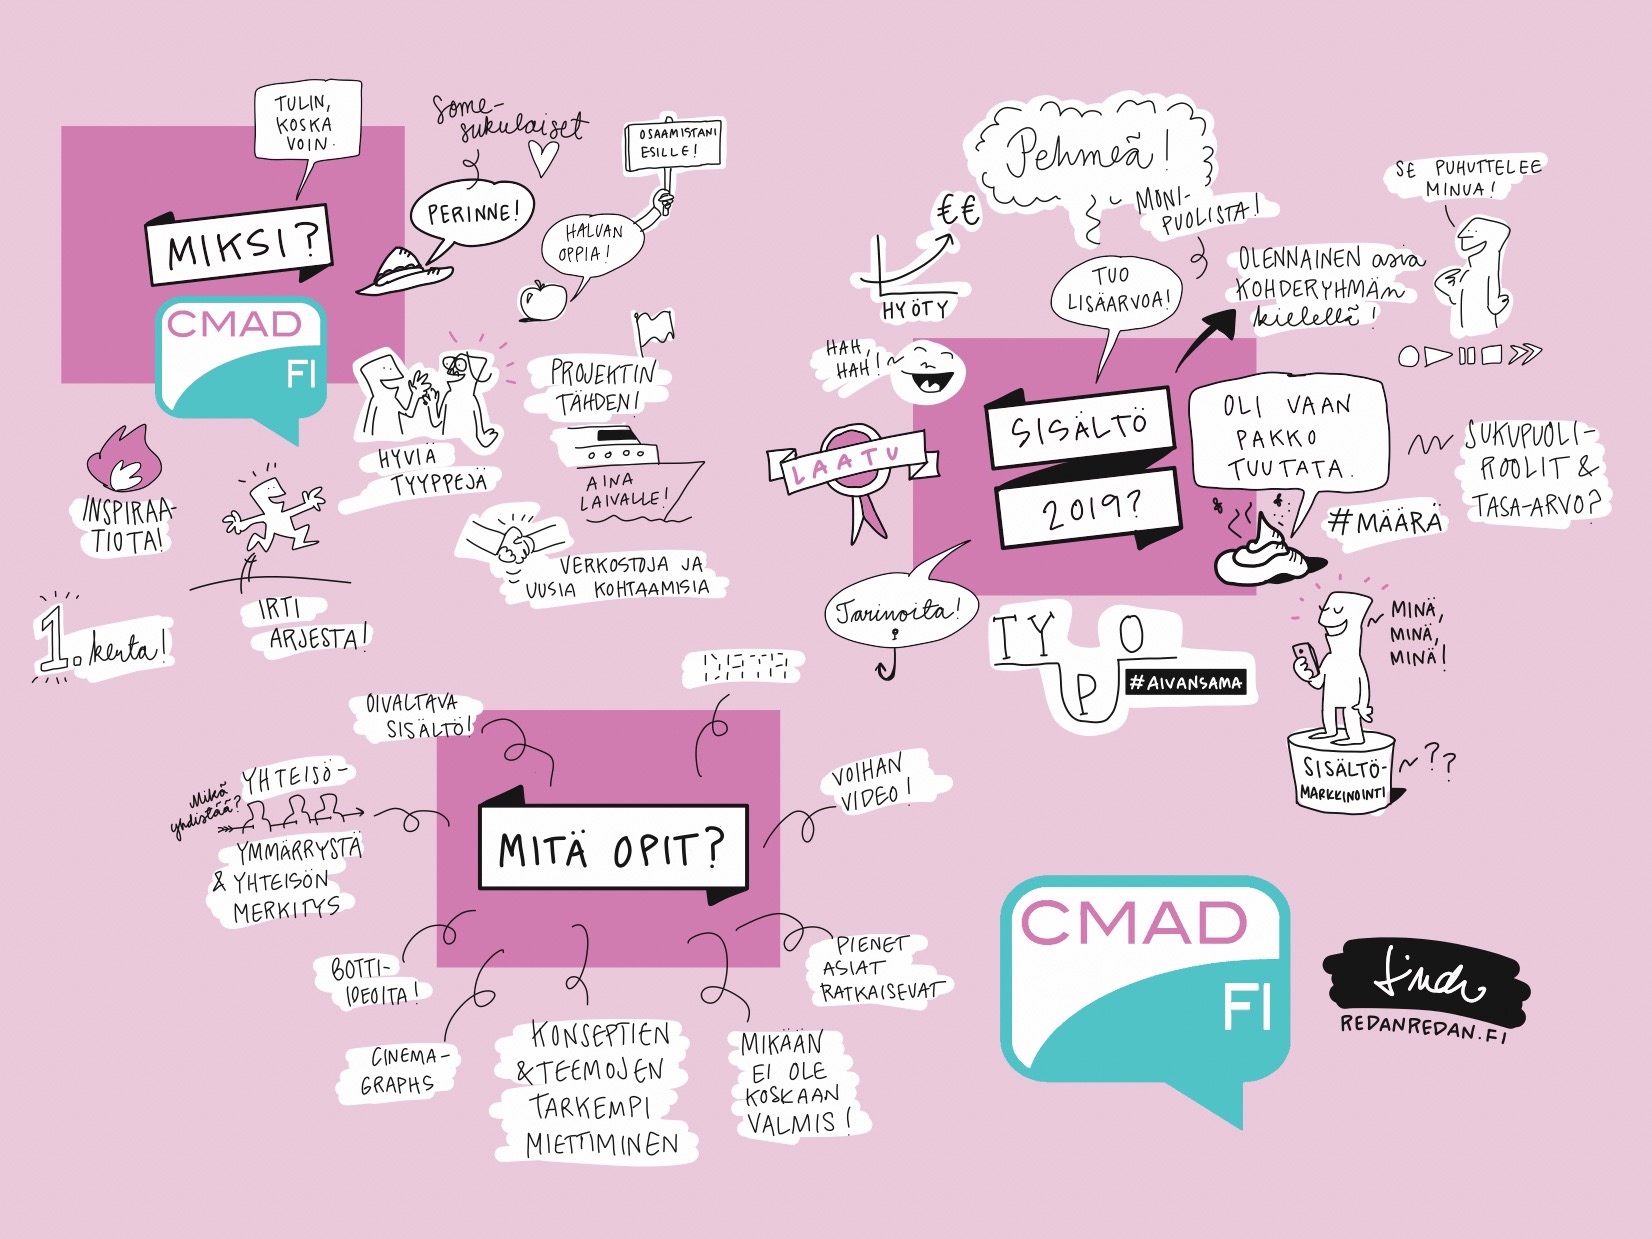 TULIN,
KOSKA
VOIN.
MIKSI?
CMAD
FI
Some-
sukulaiset
PERINNE!
OSAAMISTANI
ESILLE!
HALUAN
OPPIA!
PROJEKTIN
TÄHDEN!
HYVIÄ
TYYPPEJÄ
AINA
LAIVALLE!
VERKOSTOJA JA
UUSIA KOHTAAMISIA
INSPIRAA-
TIOTA!
IRTI
ARJESTA!
1. kerta!
Pehmeä!
MONI-
PUOLISTA!
€€
HYÖTY
TUO
LISÄARVOA!
OLENNAINEN asia
KOHDERYHMÄN
kielellä!
SE PUHUTTELEE
MINUA!
HAH,
HAH!
LAATU
SISÄLTÖ
2019?
OLI VAAN
PAKKO
TUUTATA.
SUKUPUOLI-
ROOLIT &
TASA-ARVO?
#MÄÄRÄ
Tarinoita!
TYPO
#AIVANSAMA
MINÄ,
MINÄ,
MINÄ!
SISÄLTÖ-
MARKKINOINTI
??
MITÄ OPIT?
OIVALTAVA
SISÄLTÖ!
Mikä
yhdistää?
YHTEISÖ-
YMMÄRRYSTÄ
& YHTEISÖN
MERKITYS
BOTTI-
IDEOITA!
CINEMA-
GRAPHS
KONSEPTIEN
& TEEMOJEN
TARKEMPI
MIETTIMINEN
MIKÄÄN
EI OLE
KOSKAAN
VALMIS!
PIENET
ASIAT
RATKAISEVAT
VOIHAN
VIDEO!
CMAD
FI
REDANREDAN.FI